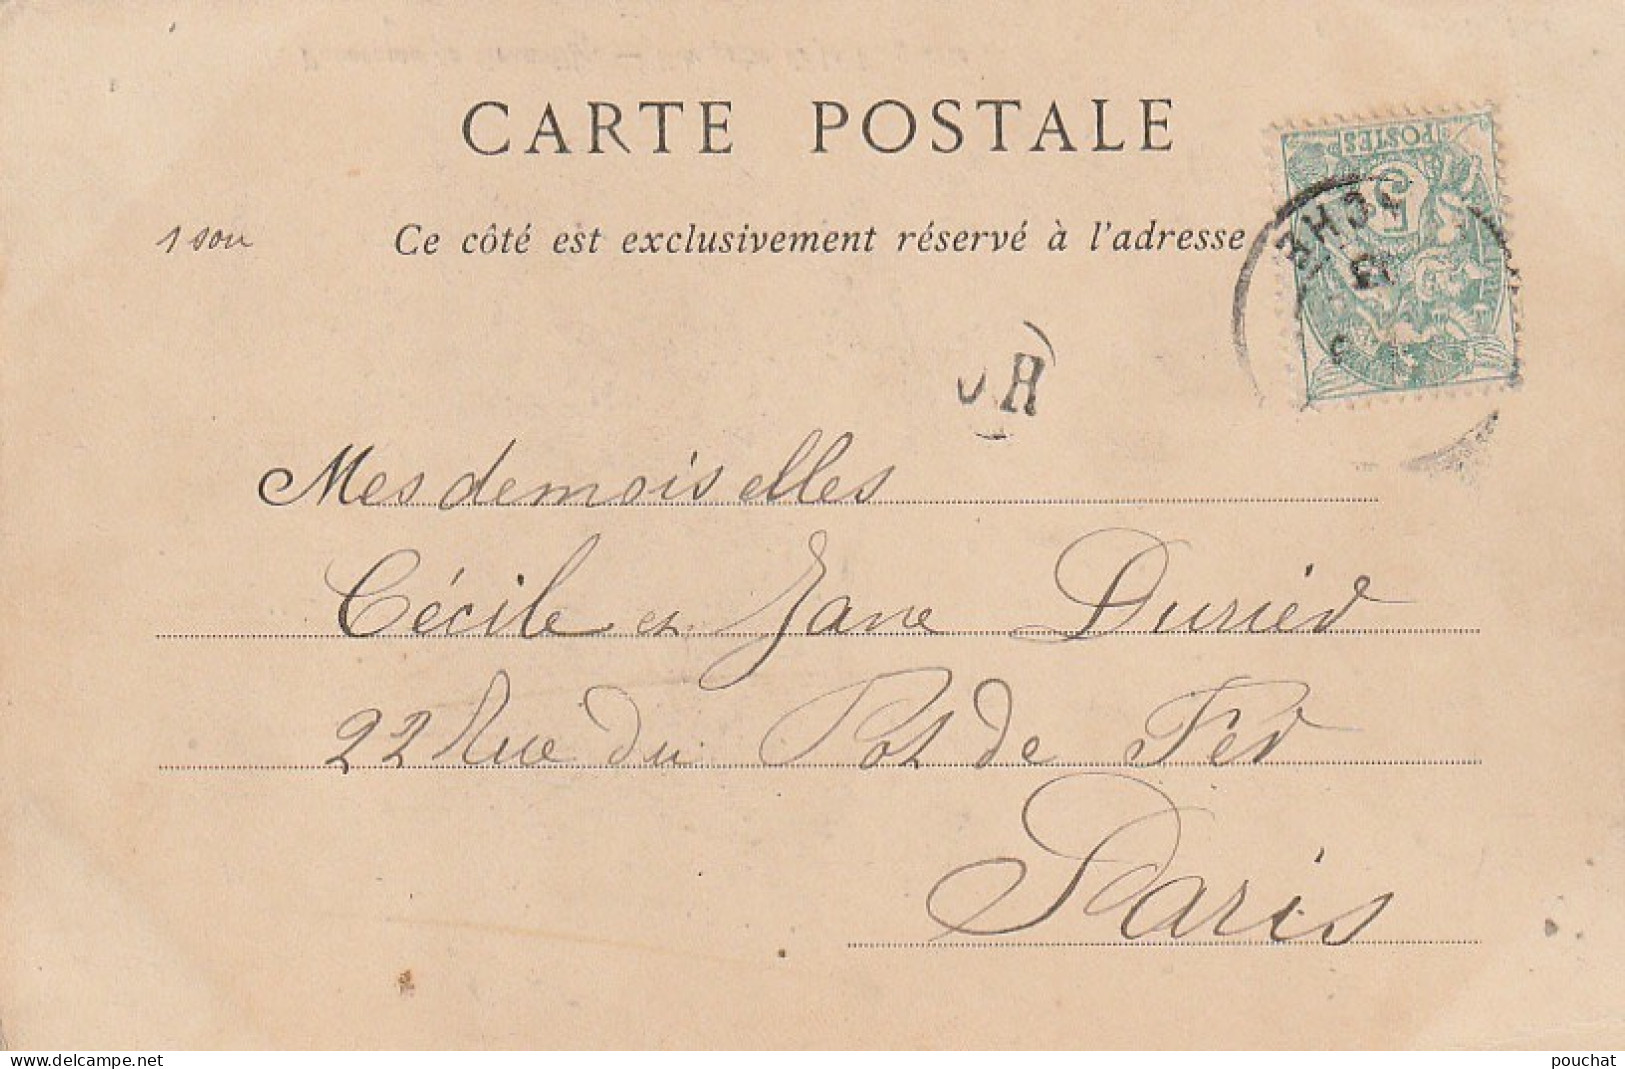 CARTE POSTALE
1 sou
Ce côté est exclusivement réservé à l'adresse
POSTES
Mesdemoiselles
Cécile et Jane
22 Rue du Pot de Fer
Paris
www.delcampe.net
pouchat